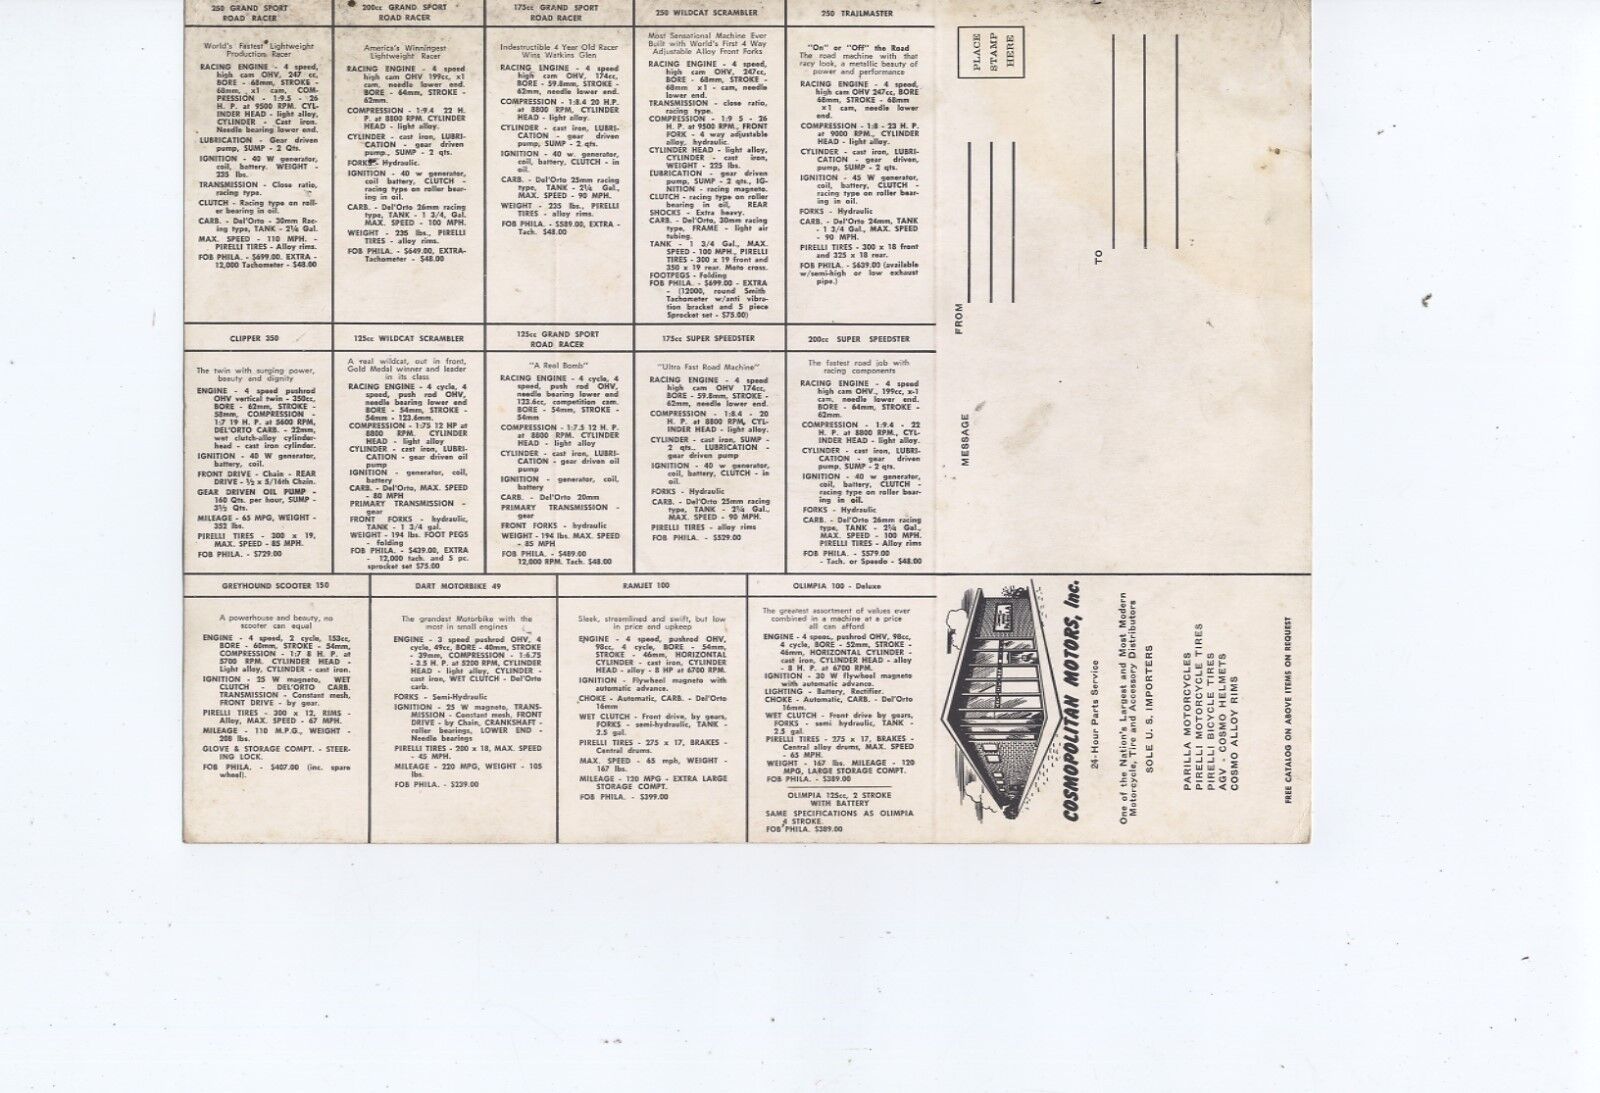 250 GRAND SPORT
ROAD RACER
World's Fastest Lightweight
Production Racer
RACING ENGINE - 4 speed,
high cam OHV, 247 cc,
BORE - 68mm, STROKE -
68mm, x1 cam, COM-
PRESSION - 1:9.5 - 26
H. P. at 9500 RPM. CYL-
INDER HEAD - light alloy,
CYLINDER - Cast iron.
Needle bearing lower end.
LUBRICATION - Gear driven
pump, SUMP - 2 Qts.
IGNITION - 40 W generator,
coil, battery, WEIGHT -
235 lbs.
TRANSMISSION - Close ratio,
racing type.
CLUTCH - Racing type on roll-
er bearing in oil.
CARB. - Del'Orto - 30mm Rac-
ing type, TANK - 2¼ Gal.
MAX. SPEED - 110 MPH. -
PIRELLI TIRES - Alloy rims.
FOB PHILA. - $699.00. EXTRA -
12,000 Tachometer - $48.00
200cc GRAND SPORT
ROAD RACER
America's Winningest
Lightweight Racer
RACING ENGINE - 4 speed
high cam OHV 199cc, x1
cam, needle lower end.
BORE - 64mm, STROKE -
62mm.
COMPRESSION - 1:9.4 22 H.
P. at 8800 RPM. CYLINDER
HEAD - light alloy.
CYLINDER - cast iron, LUBRI-
CATION - gear driven
pump, SUMP - 2 qts.
FORKS - Hydraulic.
IGNITION - 40 w generator,
coil battery, CLUTCH -
racing type on roller bear-
ing in oil.
CARB. - Del'Orto 26mm racing
type, TANK - 1 3/4, Gal.
MAX. SPEED - 100 MPH.
WEIGHT - 235 lbs., PIRELLI
TIRES - alloy rims.
FOB PHILA. - $649.00, EXTRA-
Tachometer - $48.00
175cc GRAND SPORT
ROAD RACER
Indestructible 4 Year Old Racer
Wins Watkins Glen
RACING ENGINE - 4 speed
high cam OHV, 174cc,
BORE - 59.8mm, STROKE -
62mm, needle lower end.
COMPRESSION - 1:8.4 20 H.P.
at 8800 RPM, CYLINDER
HEAD - light alloy.
CYLINDER - cast iron, LUBRI-
CATION - gear driven
pump, SUMP - 2 qts.
IGNITION - 40 w. generator,
coil, battery, CLUTCH - in
oil.
CARB. - Del'Orto 25mm racing
type, TANK - 2¼ Gal.,
MAX. SPEED - 90 MPH.
WEIGHT - 235 lbs., PIRELLI
TIRES - alloy rims.
FOB PHILA. - $589.00, EXTRA -
Tach. $48.00
250 WILDCAT SCRAMBLER
Most Sensational Machine Ever
Built with World's First 4 Way
Adjustable Alloy Front Forks
RACING ENGINE - 4 speed,
high cam OHV, 247cc,
BORE - 68mm, STROKE -
68mm x1 - cam, needle
lower end.
TRANSMISSION - close ratio,
racing type.
COMPRESSION - 1:9 5 - 26
H. P. at 9500 RPM., FRONT
FORK - 4 way adjustable
alloy, hydraulic.
CYLINDER HEAD - light alloy,
CYLINDER - cast iron,
WEIGHT - 225 lbs.
LUBRICATION - gear driven
pump, SUMP - 2 qts., IG-
NITION - racing magneto.
CLUTCH - racing type on roller
bearing in oil, REAR
SHOCKS - Extra heavy.
CARB. - Del'Orto, 30mm racing
type, FRAME - light air
tubing.
TANK - 1 3/4 Gal., MAX.
SPEED - 100 MPH., PIRELLI
TIRES - 300 x 19 front and
350 x 19 rear. Moto cross.
FOOTPEGS - Folding
FOB PHILA. - $699.00 - EXTRA
- (12000, round Smith
Tachometer w/anti vibra-
tion bracket and 5 piece
Sprocket set - $75.00)
250 TRAILMASTER
"On" or "Off" the Road
The road machine with that
racy look, a metallic beauty of
power and performance
RACING ENGINE - 4 speed,
high cam OHV 247cc, BORE
68mm, STROKE - 68mm
x1 cam, needle lower
end.
COMPRESSION - 1:8 - 23 H. P.
at 9000 RPM., CYLINDER
HEAD - light alloy.
CYLINDER - cast iron, LUBRI-
CATION - gear driven,
pump, SUMP - 2 qts.
IGNITION - 45 W generator,
coil, battery, CLUTCH -
racing type on roller bear-
ing in oil.
FORKS - Hydraulic
CARB. - Del'Orto 24mm, TANK
- 1 3/4 Gal., MAX. SPEED
- 90 MPH.
PIRELLI TIRES - 300 x 18 front
and 325 x 18 rear.
FOB PHILA. - $639.00 (available
w/semi-high or low exhaust
pipe.)
CLIPPER 350
The twin with surging power,
beauty and dignity
ENGINE - 4 speed pushrod
OHV vertical twin - 350cc,
BORE - 62mm, STROKE -
58mm, COMPRESSION -
1:7 19 H. P. at 5600 RPM,
DEL'ORTO CARB. - 22mm,
wet clutch-alloy cylinder-
head - cast iron cylinder.
IGNITION - 40 W generator,
battery, coil.
FRONT DRIVE - Chain - REAR
DRIVE - ½ x 5/16th Chain.
GEAR DRIVEN OIL PUMP -
160 Qts. per hour, SUMP -
3½ Qts.
MILEAGE - 65 MPG, WEIGHT -
352 lbs.
PIRELLI TIRES - 300 x 19,
MAX. SPEED - 85 MPH.
FOB PHILA. - $729.00
125cc WILDCAT SCRAMBLER
A real wildcat, out in front,
Gold Medal winner and leader
in its class
RACING ENGINE - 4 cycle, 4
speed, push rod OHV,
needle bearing lower end
BORE - 54mm, STROKE -
54mm - 123.6mm.
COMPRESSION - 1:75 12 HP at
8800 RPM. CYLINDER
HEAD - light alloy
CYLINDER - cast iron, LUBRI-
CATION - gear driven oil
pump
IGNITION - generator, coil,
battery
CARB. - Del'Orto, MAX. SPEED
- 80 MPH
PRIMARY TRANSMISSION -
gear
FRONT FORKS - hydraulic,
TANK - 1 3/4 gal.
WEIGHT - 194 lbs. FOOT PEGS
- folding
FOB PHILA. - $439.00, EXTRA
- 12,000 tach. and 5 pc.
sprocket set $75.00
125cc GRAND SPORT
ROAD RACER
"A Real Bomb"
RACING ENGINE - 4 cycle, 4
speed, push rod OHV,
needle bearing lower end
123.6cc, competition cam.
BORE - 54mm, STROKE -
54mm
COMPRESSION - 1:7.5 12 H. P.
at 8800 RPM, CYLINDER
HEAD - light alloy
CYLINDER - cast iron, LUBRI-
CATION - gear driven oil
pump
IGNITION - generator, coil,
battery
CARB. - Del'Orto 20mm
PRIMARY TRANSMISSION -
gear
FRONT FORKS - hydraulic
WEIGHT - 194 lbs. MAX. SPEED
- 85 MPH
FOB PHILA. - $489.00
12,000 RPM. Tach. $48.00
175cc SUPER SPEEDSTER
"Ultra Fast Road Machine"
RACING ENGINE - 4 speed
high cam OHV 174cc,
BORE - 59.8mm, STROKE -
62mm, needle lower end.
COMPRESSION - 1:8.4 - 20
H. P. at 8800 RPM, CYL-
INDER HEAD - light alloy.
CYLINDER - cast iron, SUMP -
2 qts., LUBRICATION -
gear driven pump
IGNITION - 40 w generator,
coil, battery, CLUTCH - in
oil.
FORKS - Hydraulic
CARB. - Del'Orto 25mm racing
type, TANK - 2¼ Gal.,
MAX. SPEED - 90 MPH.
PIRELLI TIRES - alloy rims
FOB PHILA. - $529.00
200cc SUPER SPEEDSTER
The fastest road job with
racing components
RACING ENGINE - 4 speed
high cam OHV., 199cc, x-1
cam, needle lower end.
BORE - 64mm, STROKE -
62mm.
COMPRESSION - 1:9.4 - 22
H. P. at 8800 RPM., CYL-
INDER HEAD - light alloy.
CYLINDER - cast iron, LUBRI-
CATION - gear driven
pump, SUMP - 2 qts.
IGNITION - 40 w generator,
coil, battery, CLUTCH -
racing type on roller bear-
ing in oil.
FORKS - Hydraulic
CARB. - Del'Orto 26mm racing
type, TANK - 2¼ Gal.,
MAX. SPEED - 100 MPH.
PIRELLI TIRES - Alloy rims
FOB PHILA. - $579.00
- Tach. or Speedo - $48.00
GREYHOUND SCOOTER 150
A powerhouse and beauty, no
scooter can equal
ENGINE - 4 speed, 2 cycle, 153cc,
BORE - 60mm, STROKE - 54mm,
COMPRESSION - 1:7 8 H. P. at
5700 RPM. CYLINDER HEAD -
Light alloy, CYLINDER - cast iron.
IGNITION - 25 W magneto, WET
CLUTCH - DEL'ORTO CARB.
TRANSMISSION - Constant mesh,
FRONT DRIVE - by gear.
PIRELLI TIRES - 300 x 12, RIMS -
Alloy, MAX. SPEED - 67 MPH.
MILEAGE - 110 M.P.G., WEIGHT -
208 lbs.
GLOVE & STORAGE COMPT. - STEER-
ING LOCK.
FOB PHILA. - $407.00 (inc. spare
wheel).
DART MOTORBIKE 49
The grandest Motorbike with the
most in small engines
ENGINE - 3 speed pushrod OHV, 4
cycle, 49cc, BORE - 40mm, STROKE
- 39mm, COMPRESSION - 1:6.75
- 2.5 H.P. at 5200 RPM, CYLINDER
HEAD - light alloy, CYLINDER - cast
iron, WET CLUTCH - Del'Orto
carb.
FORKS - Semi-Hydraulic
IGNITION - 25 W magneto, TRANS-
MISSION - Constant mesh, FRONT
DRIVE - by Chain, CRANKSHAFT -
roller bearings, LOWER END -
Needle bearings
PIRELLI TIRES - 280 x 18, MAX. SPEED
- 45 MPH.
MILEAGE - 220 MPG, WEIGHT - 105
lbs.
FOB PHILA. - $239.00
RAMJET 100
Sleek, streamlined and swift, but low
in price and upkeep
ENGINE - 4 speed, pushrod OHV,
98cc, 4 cycle, BORE - 54mm,
STROKE - 46mm, HORIZONTAL
CYLINDER - cast iron, CYLINDER
HEAD - alloy - 8 HP at 6700 RPM.
IGNITION - Flywheel magneto with
automatic advance.
CHOKE - Automatic, CARB. - Del'Orto
16mm
WET CLUTCH - Front drive, by gears,
FORKS - semi-hydraulic, TANK -
2.5 gal.
PIRELLI TIRES - 275 x 17, BRAKES -
Central drums.
MAX. SPEED - 65 mph, WEIGHT -
167 lbs.
MILEAGE - 120 MPG - EXTRA LARGE
STORAGE COMPT.
FOB PHILA. - $399.00
OLIMPIA 100 - Deluxe
The greatest assortment of values ever
combined in a machine at a price
all can afford
ENGINE - 4 speed, pushrod OHV, 98cc,
4 cycle, BORE - 52mm, STROKE -
46mm, HORIZONTAL CYLINDER -
cast iron, CYLINDER HEAD - alloy
- 8 H. P. at 6700 RPM.
IGNITION - 30 W flywheel magneto
with automatic advance.
LIGHTING - Battery, Rectifier.
CHOKE - Automatic, CARB. - Del'Orto
16mm.
WET CLUTCH - Front drive by gears,
FORKS - semi hydraulic, TANK -
2.5 gal.
PIRELLI TIRES - 275 x 17, BRAKES -
Central alloy drums, MAX. SPEED
- 65 MPH.
WEIGHT - 167 lbs. MILEAGE - 120
MPG, LARGE STORAGE COMPT.
FOB PHILA. - $389.00
OLIMPIA 125cc, 2 STROKE
WITH BATTERY
SAME SPECIFICATIONS AS OLIMPIA
4 STROKE.
FOB PHILA. $389.00
PLACE
STAMP
HERE
FROM
TO
MESSAGE
COSMOPOLITAN MOTORS, Inc.
24-Hour Parts Service
One of the Nation's Largest and Most Modern
Motorcycle, Tire and Accessory Distributors
SOLE U. S. IMPORTERS
PARILLA MOTORCYCLES
PIRELLI MOTORCYCLE TIRES
PIRELLI BICYCLE TIRES
AGV - COSMO HELMETS
COSMO ALLOY RIMS
FREE CATALOG ON ABOVE ITEMS ON REQUEST